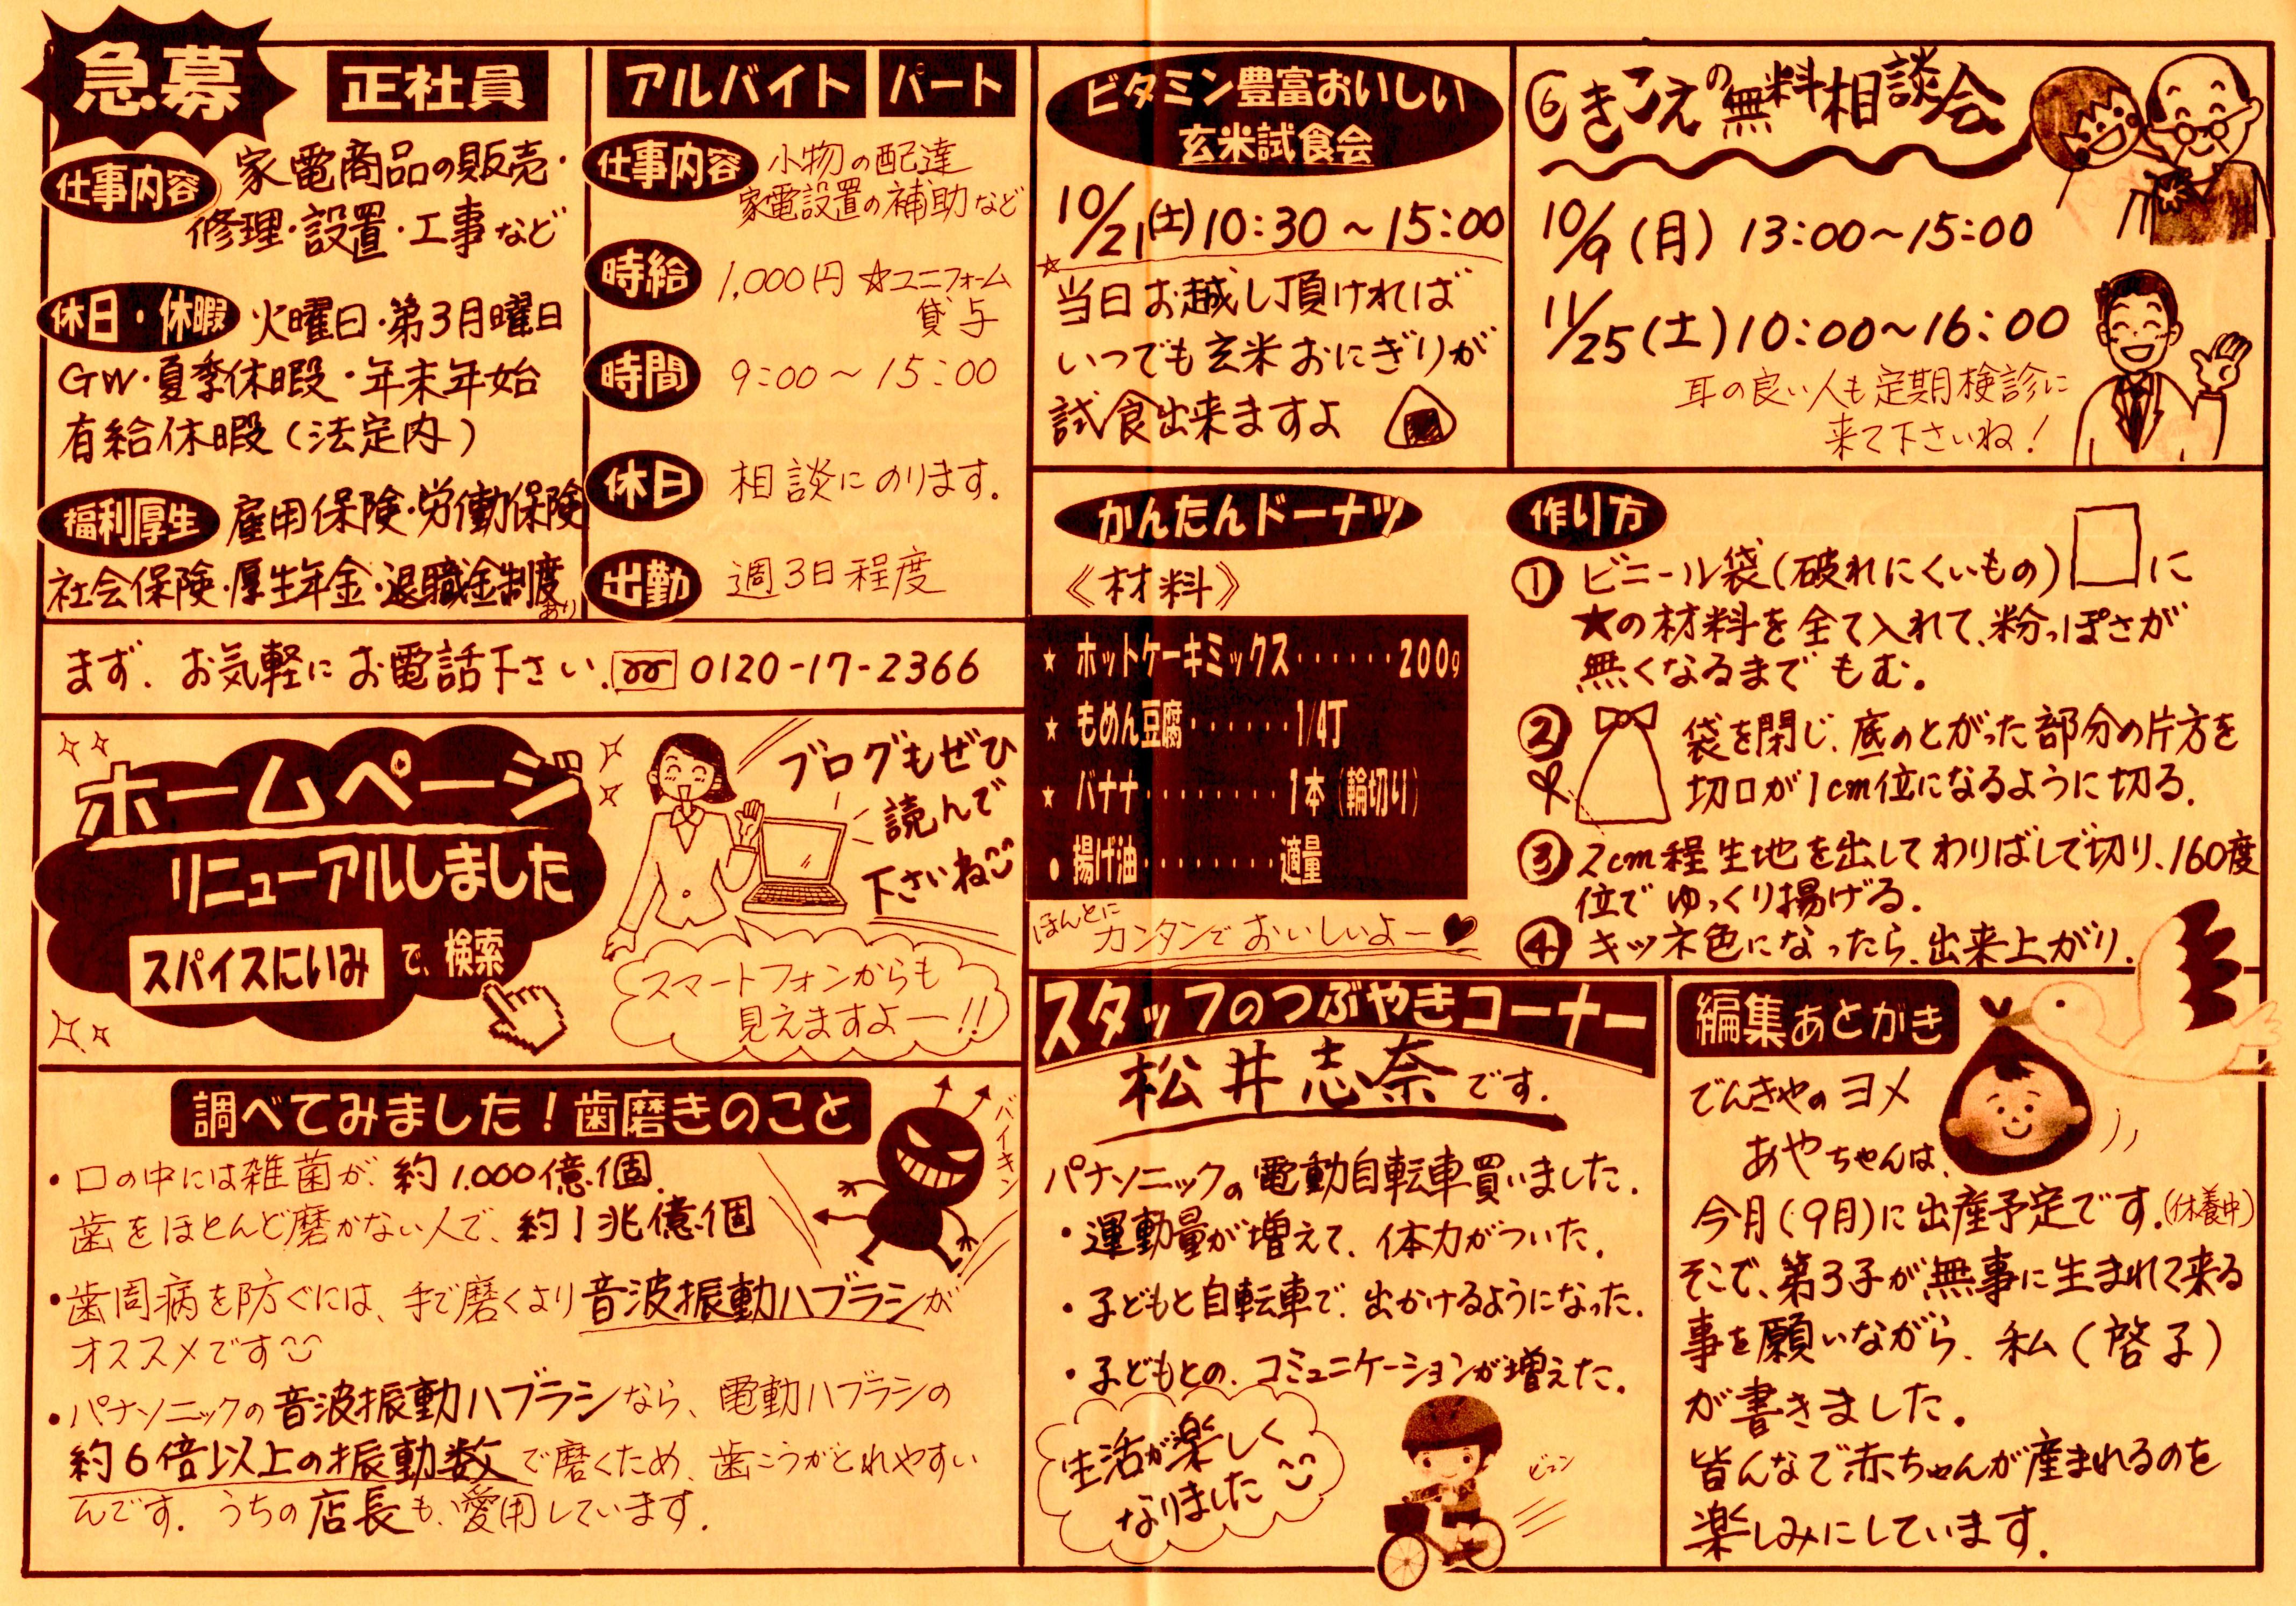 急募
正社員
仕事内容 家電商品の販売・
修理・設置・工事など
休日・休暇 火曜日・第3月曜日
GW・夏季休暇・年末年始
有給休暇(法定内)
福利厚生 雇用保険・労働保険
社会保険・厚生年金・退職金制度
あり
アルバイト パート
仕事内容 小物の配達
家電設置の補助など
時給 1,000円 ☆ユニフォーム
貸与
時間 9:00~15:00
休日 相談にのります。
出勤 週3日程度
まず、お気軽にお電話下さい。0120-17-2366
ホームページ
リニューアルしました
スパイスにいみ で、検索
ブログもぜひ
読んで
下さいね
スマートフォンからも
見えますよー!!
調べてみました!歯磨きのこと
バイキン
・口の中には雑菌が、約1.000億個、
歯をほとんど磨かない人で、約1兆億個
・歯周病を防ぐには、手で磨くより音波振動ハブラシが
オススメです
・パナソニックの音波振動ハブラシなら、電動ハブラシの
約6倍以上の振動数で磨くため、歯こうがとれやすい
んです。うちの店長も、愛用しています。
ビタミン豊富おいしい
玄米試食会
10/21(土)10:30~15:00
☆当日お越し頂ければ
いつでも玄米おにぎりが
試食出来ますよ
⑥きこえの無料相談会
10/9(月)13:00~15:00
11/25(土)10:00~16:00
耳の良い人も定期検診に
来て下さいね!
かんたんドーナツ
《材料》
★ ホットケーキミックス・・・・・・200g
★ もめん豆腐・・・・・・1/4丁
★ バナナ・・・・・・・・1本(輪切り)
● 揚げ油・・・・・・・・適量
ほんとに
カンタンでおいしいよー♥
作り方
① ビニール袋(破れにくいもの)に
★の材料を全て入れて、粉っぽさが
無くなるまでもむ。
② 袋を閉じ、底のとがった部分の片方を
切口が1cm位になるように切る。
③ 2cm程生地を出してわりばしで切り、160度
位でゆっくり揚げる。
④ キツネ色になったら、出来上がり。
スタッフのつぶやきコーナー
松井志奈です。
パナソニックの電動自転車買いました。
・運動量が増えて、体力がついた。
・子どもと自転車で、出かけるようになった。
・子どもとの、コミュニケーションが増えた。
生活が楽しく
なりました
ビュン
編集あとがき
でんきやのヨメ
あやちゃんは、
今月(9月)に出産予定です。(休養中)
そこで、第3子が無事に生まれて来る
事を願いながら、私(啓子)
が書きました。
皆んなで赤ちゃんが産まれるのを
楽しみにしています。